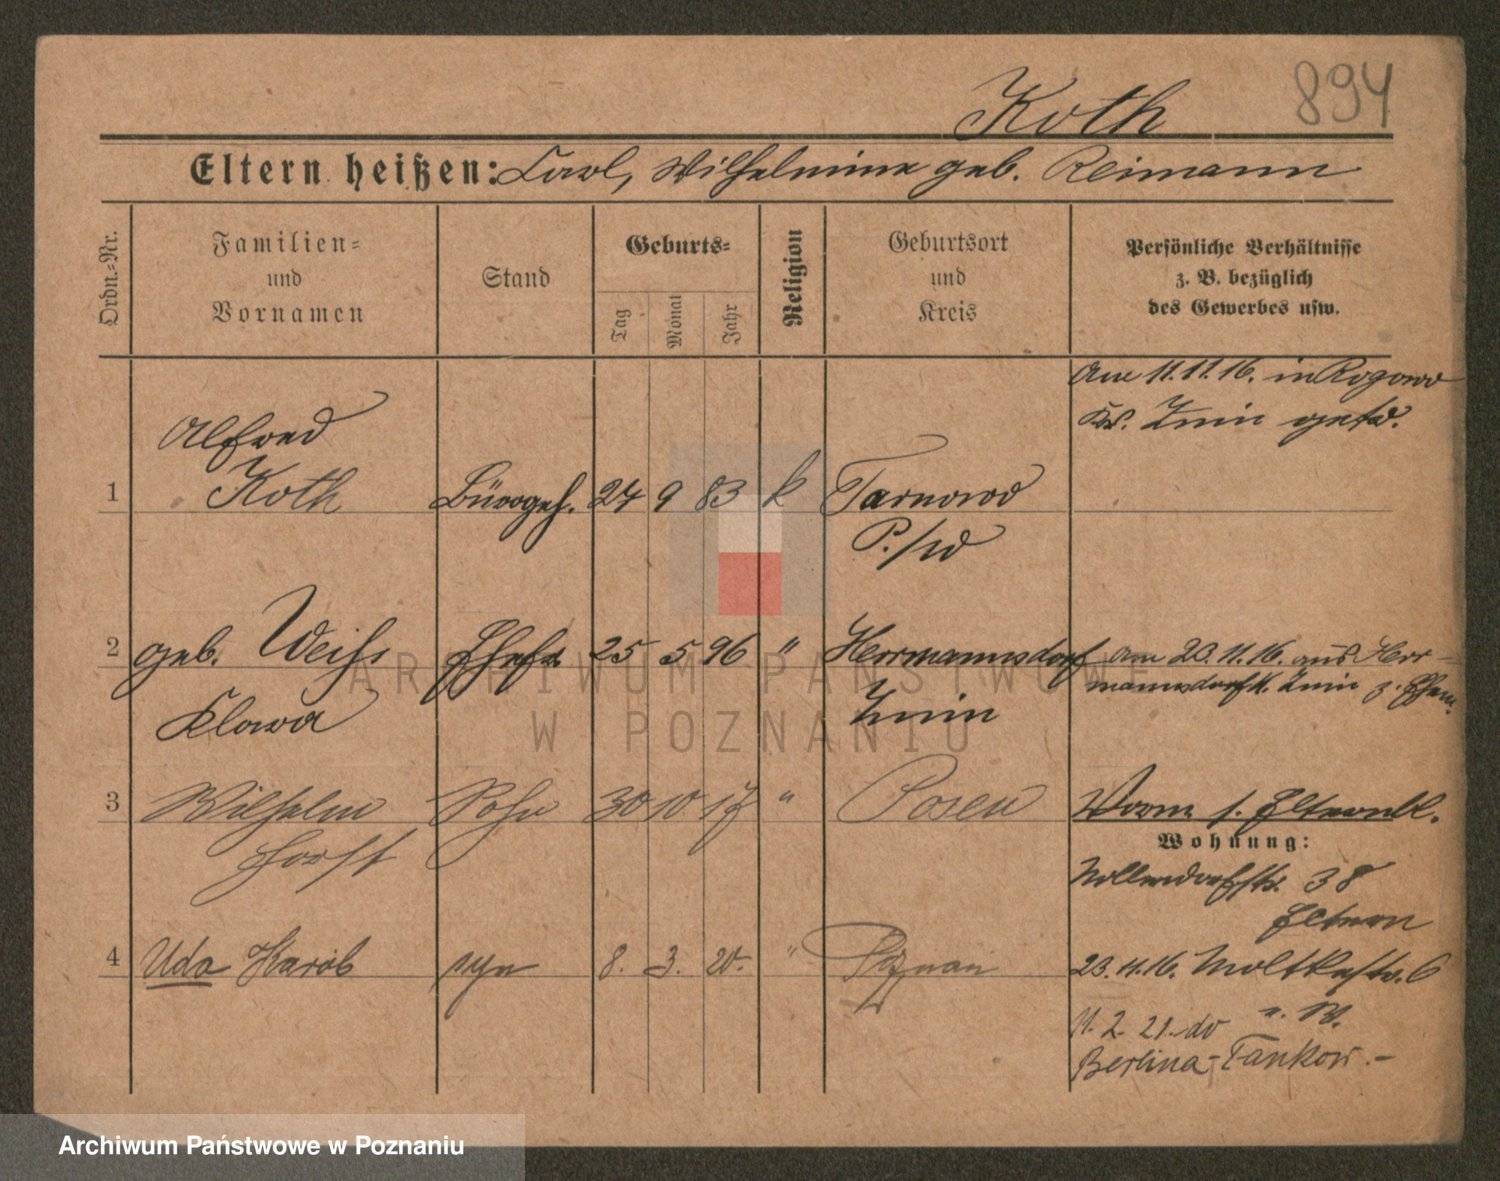 894
Koth
Eltern heißen: Carl, Wilhelmine geb. Reimann
Ordn.-Nr.
Familien-
und
Vornamen
Stand
Geburts-
Tag
Monat
Jahr
Religion
Geburtsort
und
Kreis
Persönliche Verhältnisse
z. B. bezüglich
des Gewerbes usw.
Am 11.11.16. in Rogowo
Kr. Znin getr.
Alfred
1 Koth Bürogeh. 24 9 83 k Tarnowo
P./W
2 geb. Weihs Ehefr. 25 5 96 " Herrmannsdorf am 20.11.16. aus Herr-
mannsdorf K. Znin z. Ehem.
Klara Znin
3 Wilhelm Sohn 30 10 17 " Posen Vorm s. Elternbl.
Horst
Wohnung:
Nollendorfstr. 38
Eltern
4 Udo Karól syn 8. 3. 20. " Poznań 23.11.16. Moltkestr. 6
11. 2. 21. do
Berlina-Pankow.-
ARCHIWUM PAŃSTWOWE
W POZNANIU
Archiwum Państwowe w Poznaniu